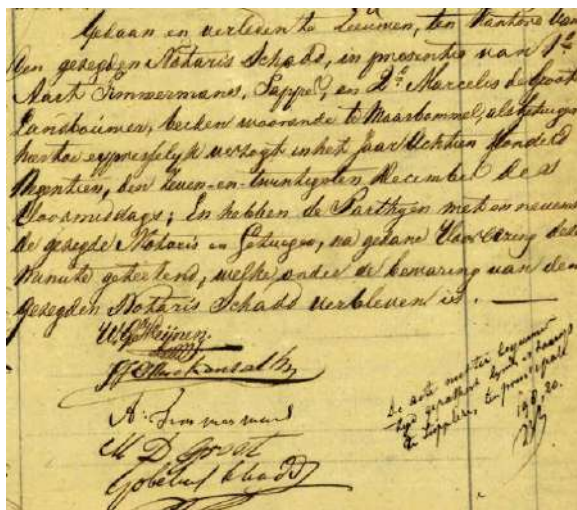 Gedaan en verleden te Leeuwen, ten Kantore van
den gezegden Notaris Schadd, in presentie van 1º
Aart Timmermans, Tapper, en 2º Marcelis de Groot
Landbouwer, beiden woonende te Maasbommel, als getuigen
hiertoe expresselijk verzogt in het Jaar Achtien Honderd
Negentien, den zeven-en-twintigsten December des
Voormiddags; En hebben de Parthyen met en nevens
de gezegde Notaris en Getuigen, na gedane Voorlezing deze
Minute geteekend, welke onder de bewaring van den
gezegden Notaris Schadd verbleven is.
A. Timmermans
M D Groot
Gobelius Schadd
De acte moet ter